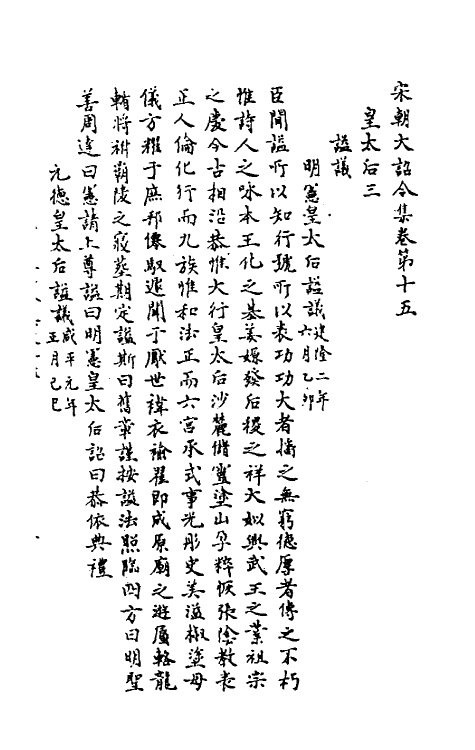 宋朝大詔令集卷第十五
皇太后三
謚議
明憲皇太后謚議建隆二年六月乙卯
臣聞謚所以知行號所以表功功大者播之無窮德厚者傳之不朽
惟詩人之咏本王化之基姜嫄發后稷之祥大姒興武王之業祖宗
之慶今古相沿恭惟大行皇太后沙麓儲靈塗山孕粹恢張陰教表
正人倫化行而九族惟和法正而六宮承式事光彤史美溢椒塗母
儀方耀于庶邦僊馭遽聞于厭世褘衣褕翟即成原廟之遊蜃輅龍
輴將祔霸陵之寢葬期定謚斯曰舊章謹按謚法照臨四方曰明聖
善周達曰憲請上尊謚曰明憲皇太后詔曰恭依典禮
元德皇太后謚議咸平元年正月己巳